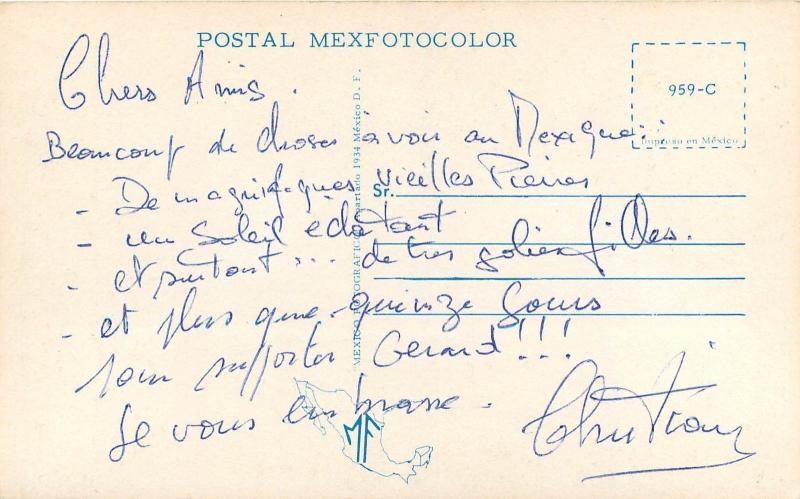 POSTAL MEXFOTOCOLOR
959-C
Impreso en México
Chers Amis.
Beaucoup de choses à voir au Mexique..
- De magnifiques vieilles Pierres
- un Soleil éclatant
- et surtout... de très jolies filles.
- et plus que quinze Jours
pour supporter Gerard!!!
Je vous embrasse.
Christian
Sr.
MEXICO FOTOGRAFICO Apartado 1934 México D. F.
MF